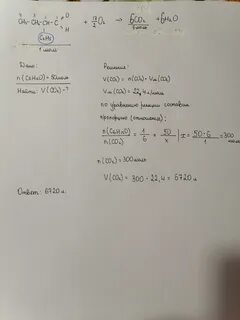 CH₃-CH₂-CH-C
O
H
+ 17/2 O₂ → 6CO₂ + 6H₂O
C₂H₅
1 моль
6 моль
Дано:
n(C₆H₁₂O) = 50 моль
Найти: V(CO₂) - ?
Решение:
V(CO₂) = n(CO₂) · Vm(CO₂)
Vm(CO₂) = 22,4 л/моль
по уравнению реакции составим
пропорцию (отношение):
n(C₆H₁₂O) / n(CO₂) = 1/6 = 50/x | x = 50·6/1 = 300 моль
n(CO₂) = 300 моль
V(CO₂) = 300 · 22,4 = 6720 л
Ответ: 6720 л.